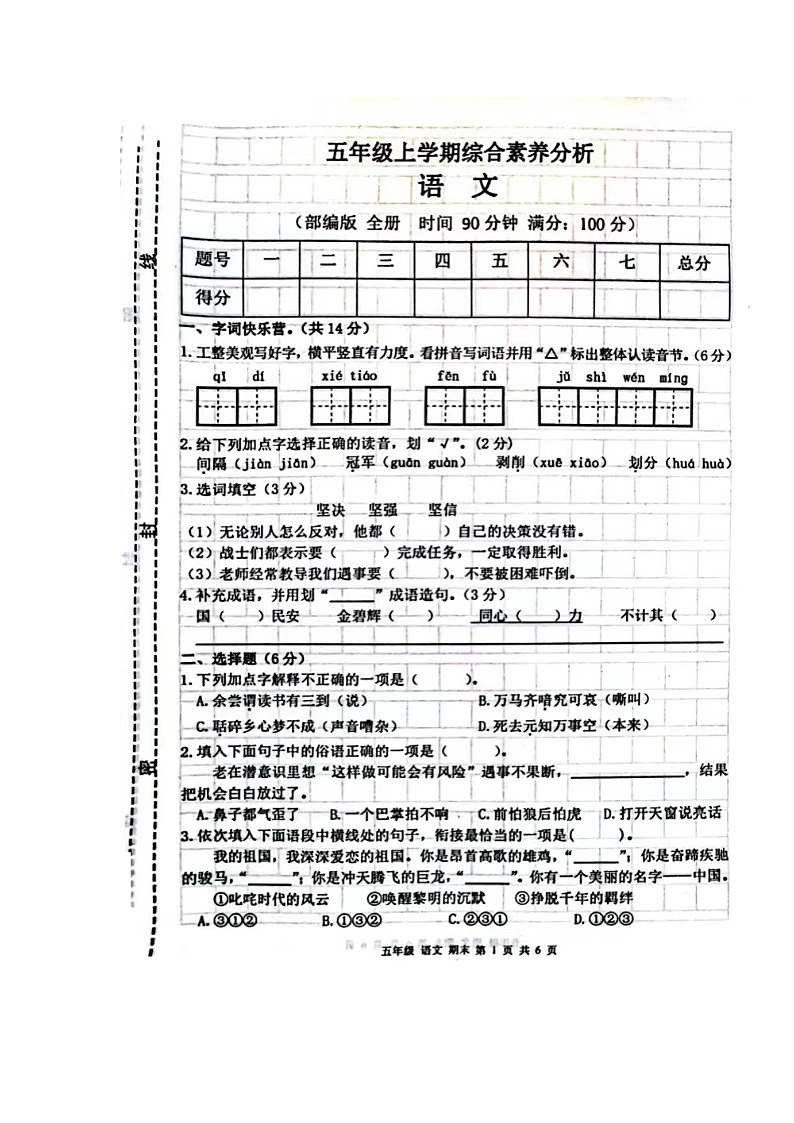 五年级上学期综合素养分析
语 文
（部编版 全册 时间 90分钟 满分：100分）
题号 一 二 三 四 五 六 七 总分
得分
一、字词快乐营。（共14分）
1.工整美观写好字，横平竖直有力度。看拼音写词语并用“△”标出整体认读音节。（6分）
qī dí xié tiáo fēn fù jǔ shì wén míng
2.给下列加点字选择正确的读音，划“√”。（2分）
间隔（jiàn jiān） 冠军（guān guàn） 剥削（xuē xiāo） 划分（huá huà）
3.选词填空（3分）
坚决 坚强 坚信
（1）无论别人怎么反对，他都（ ）自己的决策没有错。
（2）战士们都表示要（ ）完成任务，一定取得胜利。
（3）老师经常教导我们遇事要（ ），不要被困难吓倒。
4.补充成语，并用划“______”成语造句。（3分）
国（ ）民安 金碧辉（ ） 同心（ ）力 不计其（ ）
二、选择题（6分）
1.下列加点字解释不正确的一项是（ ）。
A.余尝谓读书有三到（说） B.万马齐喑究可哀（嘶叫）
C.聒碎乡心梦不成（声音嘈杂） D.死去元知万事空（本来）
2.填入下面句子中的俗语正确的一项是（ ）。
老在潜意识里想“这样做可能会有风险”遇事不果断，______________，结果
把机会白白放过了。
A.鼻子都气歪了 B.一个巴掌拍不响 C.前怕狼后怕虎 D.打开天窗说亮话
3.依次填入下面语段中横线处的句子，衔接最恰当的一项是（ ）。
我的祖国，我深深爱恋的祖国。你是昂首高歌的雄鸡，“______”；你是奋蹄疾驰
的骏马，“______”；你是冲天腾飞的巨龙，“______”。你有一个美丽的名字——中国。
①叱咤时代的风云 ②唤醒黎明的沉默 ③挣脱千年的羁绊
A.③①② B.①③② C.②③① D.①②③
五年级 语文 期末 第 1 页 共 6 页
线
封
密